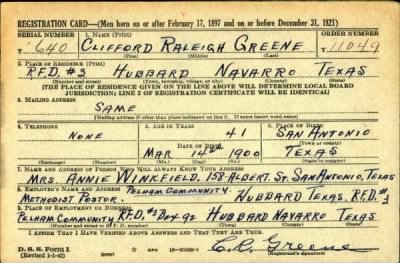 REGISTRATION CARD—(Men born on or after February 17, 1897 and on or before December 31, 1921)
SERIAL NUMBER 1. NAME (Print) ORDER NUMBER
640 CLIFFORD RALEIGH GREENE 11049
(First) (Middle) (Last)
2. PLACE OF RESIDENCE (Print)
R.F.D. #3 HUBBARD NAVARRO TEXAS
(Number and street) (Town, township, village, or city) (County) (State)
[THE PLACE OF RESIDENCE GIVEN ON THE LINE ABOVE WILL DETERMINE LOCAL BOARD
JURISDICTION; LINE 2 OF REGISTRATION CERTIFICATE WILL BE IDENTICAL]
3. MAILING ADDRESS
SAME
[Mailing address if other than place indicated on line 2. If same insert word same]
4. TELEPHONE 5. AGE IN YEARS 6. PLACE OF BIRTH
NONE 41 SAN ANTONIO
DATE OF BIRTH (Town or county)
MAR 14th 1900 TEXAS
(Mo.) (Day) (Yr.) (State or country)
7. NAME AND ADDRESS OF PERSON WHO WILL ALWAYS KNOW YOUR ADDRESS
MRS. ANNIE WINKFIELD, 158 ALBERT. ST. SAN ANTONIO, TEXAS
8. EMPLOYER'S NAME AND ADDRESS PELHAM COMMUNITY.
METHODIST PASTOR. HUBBARD TEXAS, R.F.D. #3
9. PLACE OF EMPLOYMENT OR BUSINESS
PELHAM COMMUNITY R.F.D. #3 BOX 92 HUBBARD NAVARRO TEXAS
(Number and street or R. F. D. number) (Town) (County) (State)
I AFFIRM THAT I HAVE VERIFIED ABOVE ANSWERS AND THAT THEY ARE TRUE.
D. S. S. Form 1
(Revised 1-1-42) GPO C. R. Greene
(Registrant's signature)